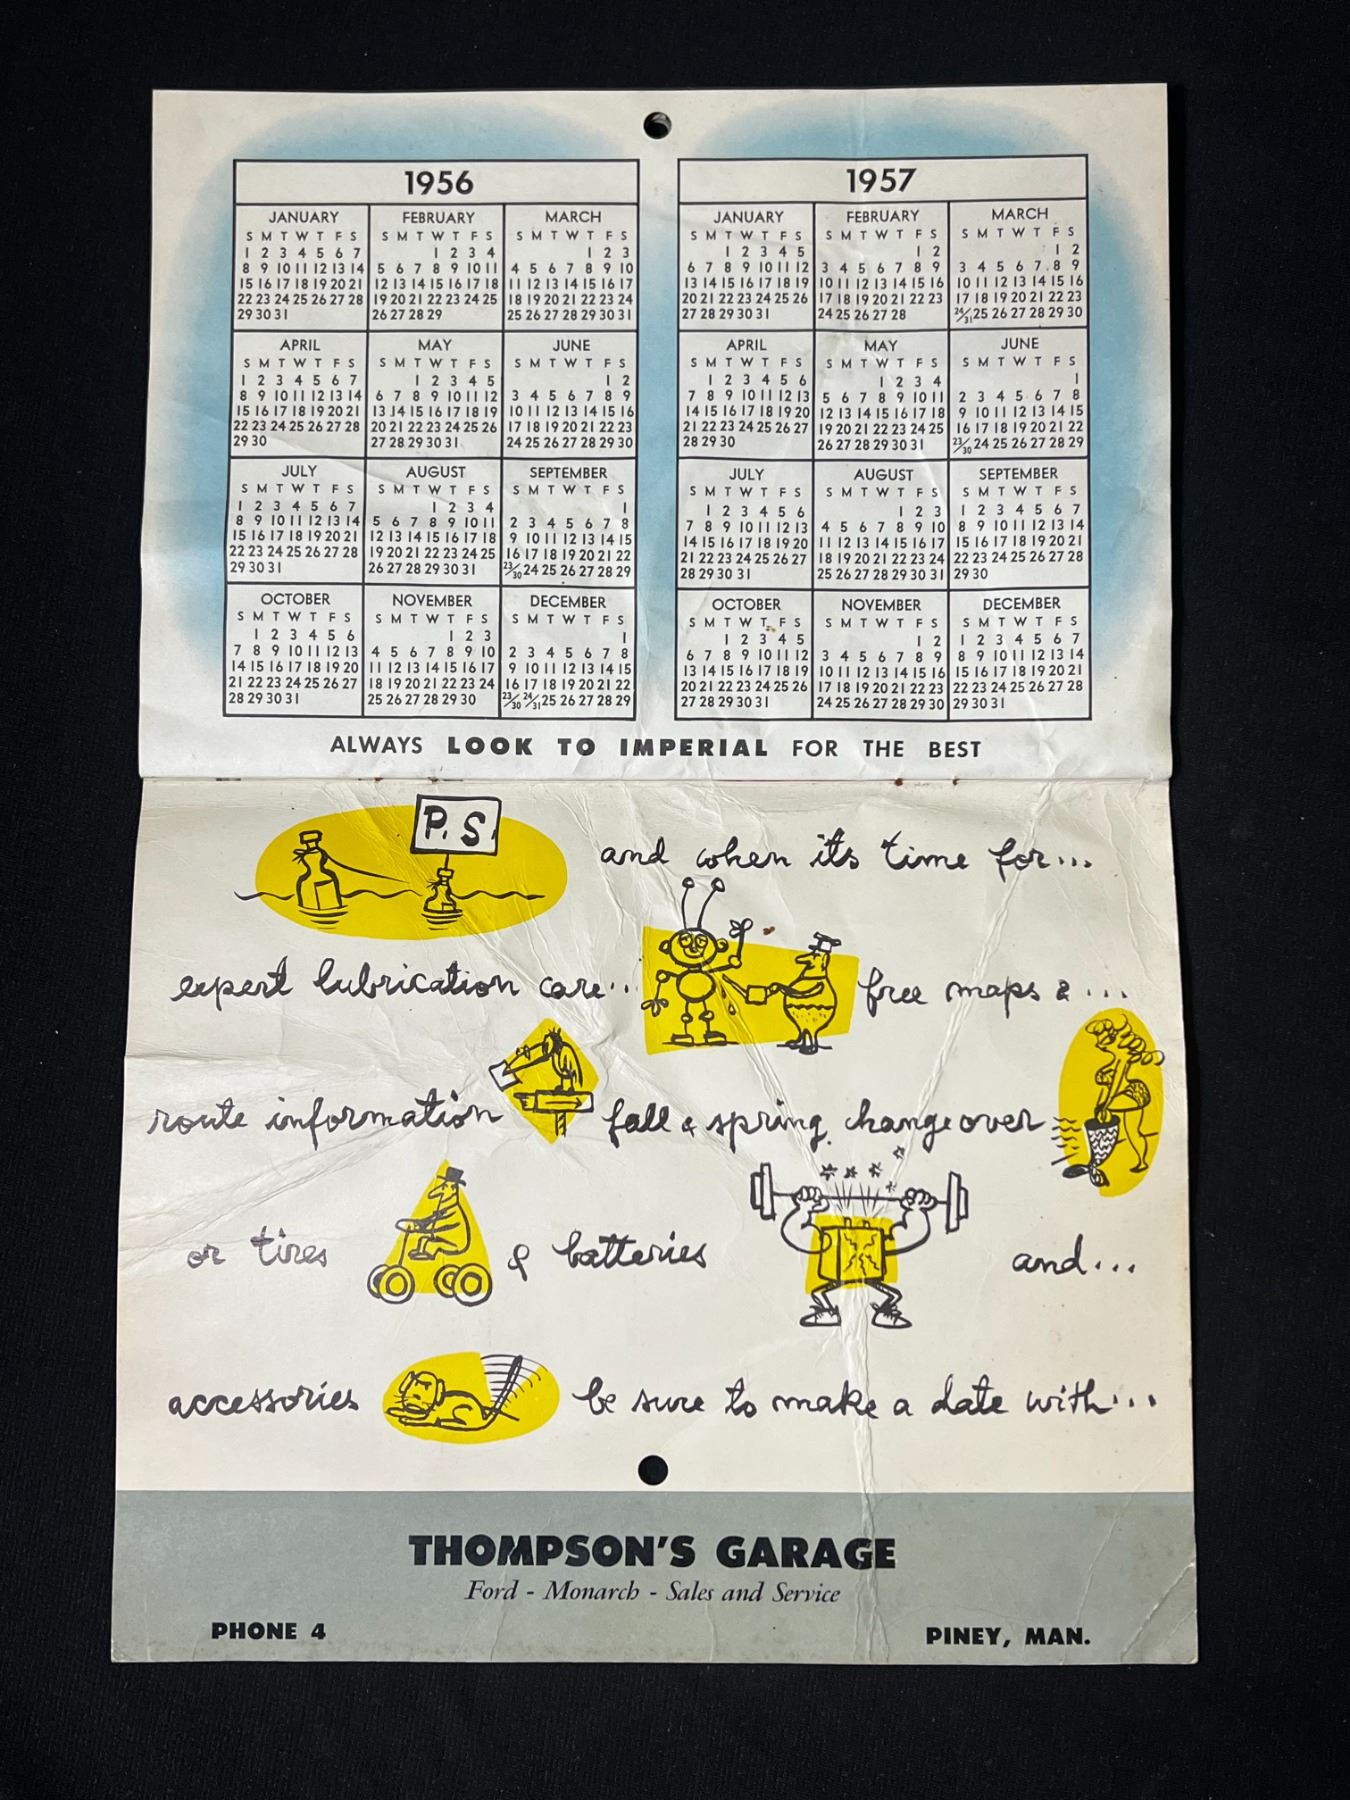 1956
JANUARY
S M T W T F S
1 2 3 4 5 6 7
8 9 10 11 12 13 14
15 16 17 18 19 20 21
22 23 24 25 26 27 28
29 30 31
FEBRUARY
S M T W T F S
1 2 3 4
5 6 7 8 9 10 11
12 13 14 15 16 17 18
19 20 21 22 23 24 25
26 27 28 29
MARCH
S M T W T F S
1 2 3
4 5 6 7 8 9 10
11 12 13 14 15 16 17
18 19 20 21 22 23 24
25 26 27 28 29 30 31
APRIL
S M T W T F S
1 2 3 4 5 6 7
8 9 10 11 12 13 14
15 16 17 18 19 20 21
22 23 24 25 26 27 28
29 30
MAY
S M T W T F S
1 2 3 4 5
6 7 8 9 10 11 12
13 14 15 16 17 18 19
20 21 22 23 24 25 26
27 28 29 30 31
JUNE
S M T W T F S
1 2
3 4 5 6 7 8 9
10 11 12 13 14 15 16
17 18 19 20 21 22 23
24 25 26 27 28 29 30
JULY
S M T W T F S
1 2 3 4 5 6 7
8 9 10 11 12 13 14
15 16 17 18 19 20 21
22 23 24 25 26 27 28
29 30 31
AUGUST
S M T W T F S
1 2 3 4
5 6 7 8 9 10 11
12 13 14 15 16 17 18
19 20 21 22 23 24 25
26 27 28 29 30 31
SEPTEMBER
S M T W T F S
1
2 3 4 5 6 7 8
9 10 11 12 13 14 15
16 17 18 19 20 21 22
23/30 24 25 26 27 28 29
OCTOBER
S M T W T F S
1 2 3 4 5 6
7 8 9 10 11 12 13
14 15 16 17 18 19 20
21 22 23 24 25 26 27
28 29 30 31
NOVEMBER
S M T W T F S
1 2 3
4 5 6 7 8 9 10
11 12 13 14 15 16 17
18 19 20 21 22 23 24
25 26 27 28 29 30
DECEMBER
S M T W T F S
1
2 3 4 5 6 7 8
9 10 11 12 13 14 15
16 17 18 19 20 21 22
23/30 24/31 25 26 27 28 29
1957
JANUARY
S M T W T F S
1 2 3 4 5
6 7 8 9 10 11 12
13 14 15 16 17 18 19
20 21 22 23 24 25 26
27 28 29 30 31
FEBRUARY
S M T W T F S
1 2
3 4 5 6 7 8 9
10 11 12 13 14 15 16
17 18 19 20 21 22 23
24 25 26 27 28
MARCH
S M T W T F S
1 2
3 4 5 6 7 8 9
10 11 12 13 14 15 16
17 18 19 20 21 22 23
24/31 25 26 27 28 29 30
APRIL
S M T W T F S
1 2 3 4 5 6
7 8 9 10 11 12 13
14 15 16 17 18 19 20
21 22 23 24 25 26 27
28 29 30
MAY
S M T W T F S
1 2 3 4
5 6 7 8 9 10 11
12 13 14 15 16 17 18
19 20 21 22 23 24 25
26 27 28 29 30 31
JUNE
S M T W T F S
1
2 3 4 5 6 7 8
9 10 11 12 13 14 15
16 17 18 19 20 21 22
23/30 24 25 26 27 28 29
JULY
S M T W T F S
1 2 3 4 5 6
7 8 9 10 11 12 13
14 15 16 17 18 19 20
21 22 23 24 25 26 27
28 29 30 31
AUGUST
S M T W T F S
1 2 3
4 5 6 7 8 9 10
11 12 13 14 15 16 17
18 19 20 21 22 23 24
25 26 27 28 29 30 31
SEPTEMBER
S M T W T F S
1 2 3 4 5 6 7
8 9 10 11 12 13 14
15 16 17 18 19 20 21
22 23 24 25 26 27 28
29 30
OCTOBER
S M T W T F S
1 2 3 4 5
6 7 8 9 10 11 12
13 14 15 16 17 18 19
20 21 22 23 24 25 26
27 28 29 30 31
NOVEMBER
S M T W T F S
1 2
3 4 5 6 7 8 9
10 11 12 13 14 15 16
17 18 19 20 21 22 23
24 25 26 27 28 29 30
DECEMBER
S M T W T F S
1 2 3 4 5 6 7
8 9 10 11 12 13 14
15 16 17 18 19 20 21
22 23 24 25 26 27 28
29 30 31
ALWAYS LOOK TO IMPERIAL FOR THE BEST
P.S. and when its time for...
expert lubrication care... free maps & ...
route information fall & spring changeover
or tires & batteries and...
accessories be sure to make a date with...
THOMPSON'S GARAGE
Ford - Monarch - Sales and Service
PHONE 4 PINEY, MAN.